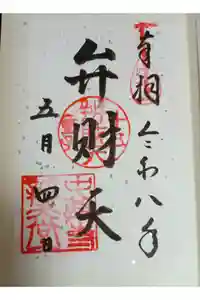 奉拝
令和八年
弁財天
五月四日